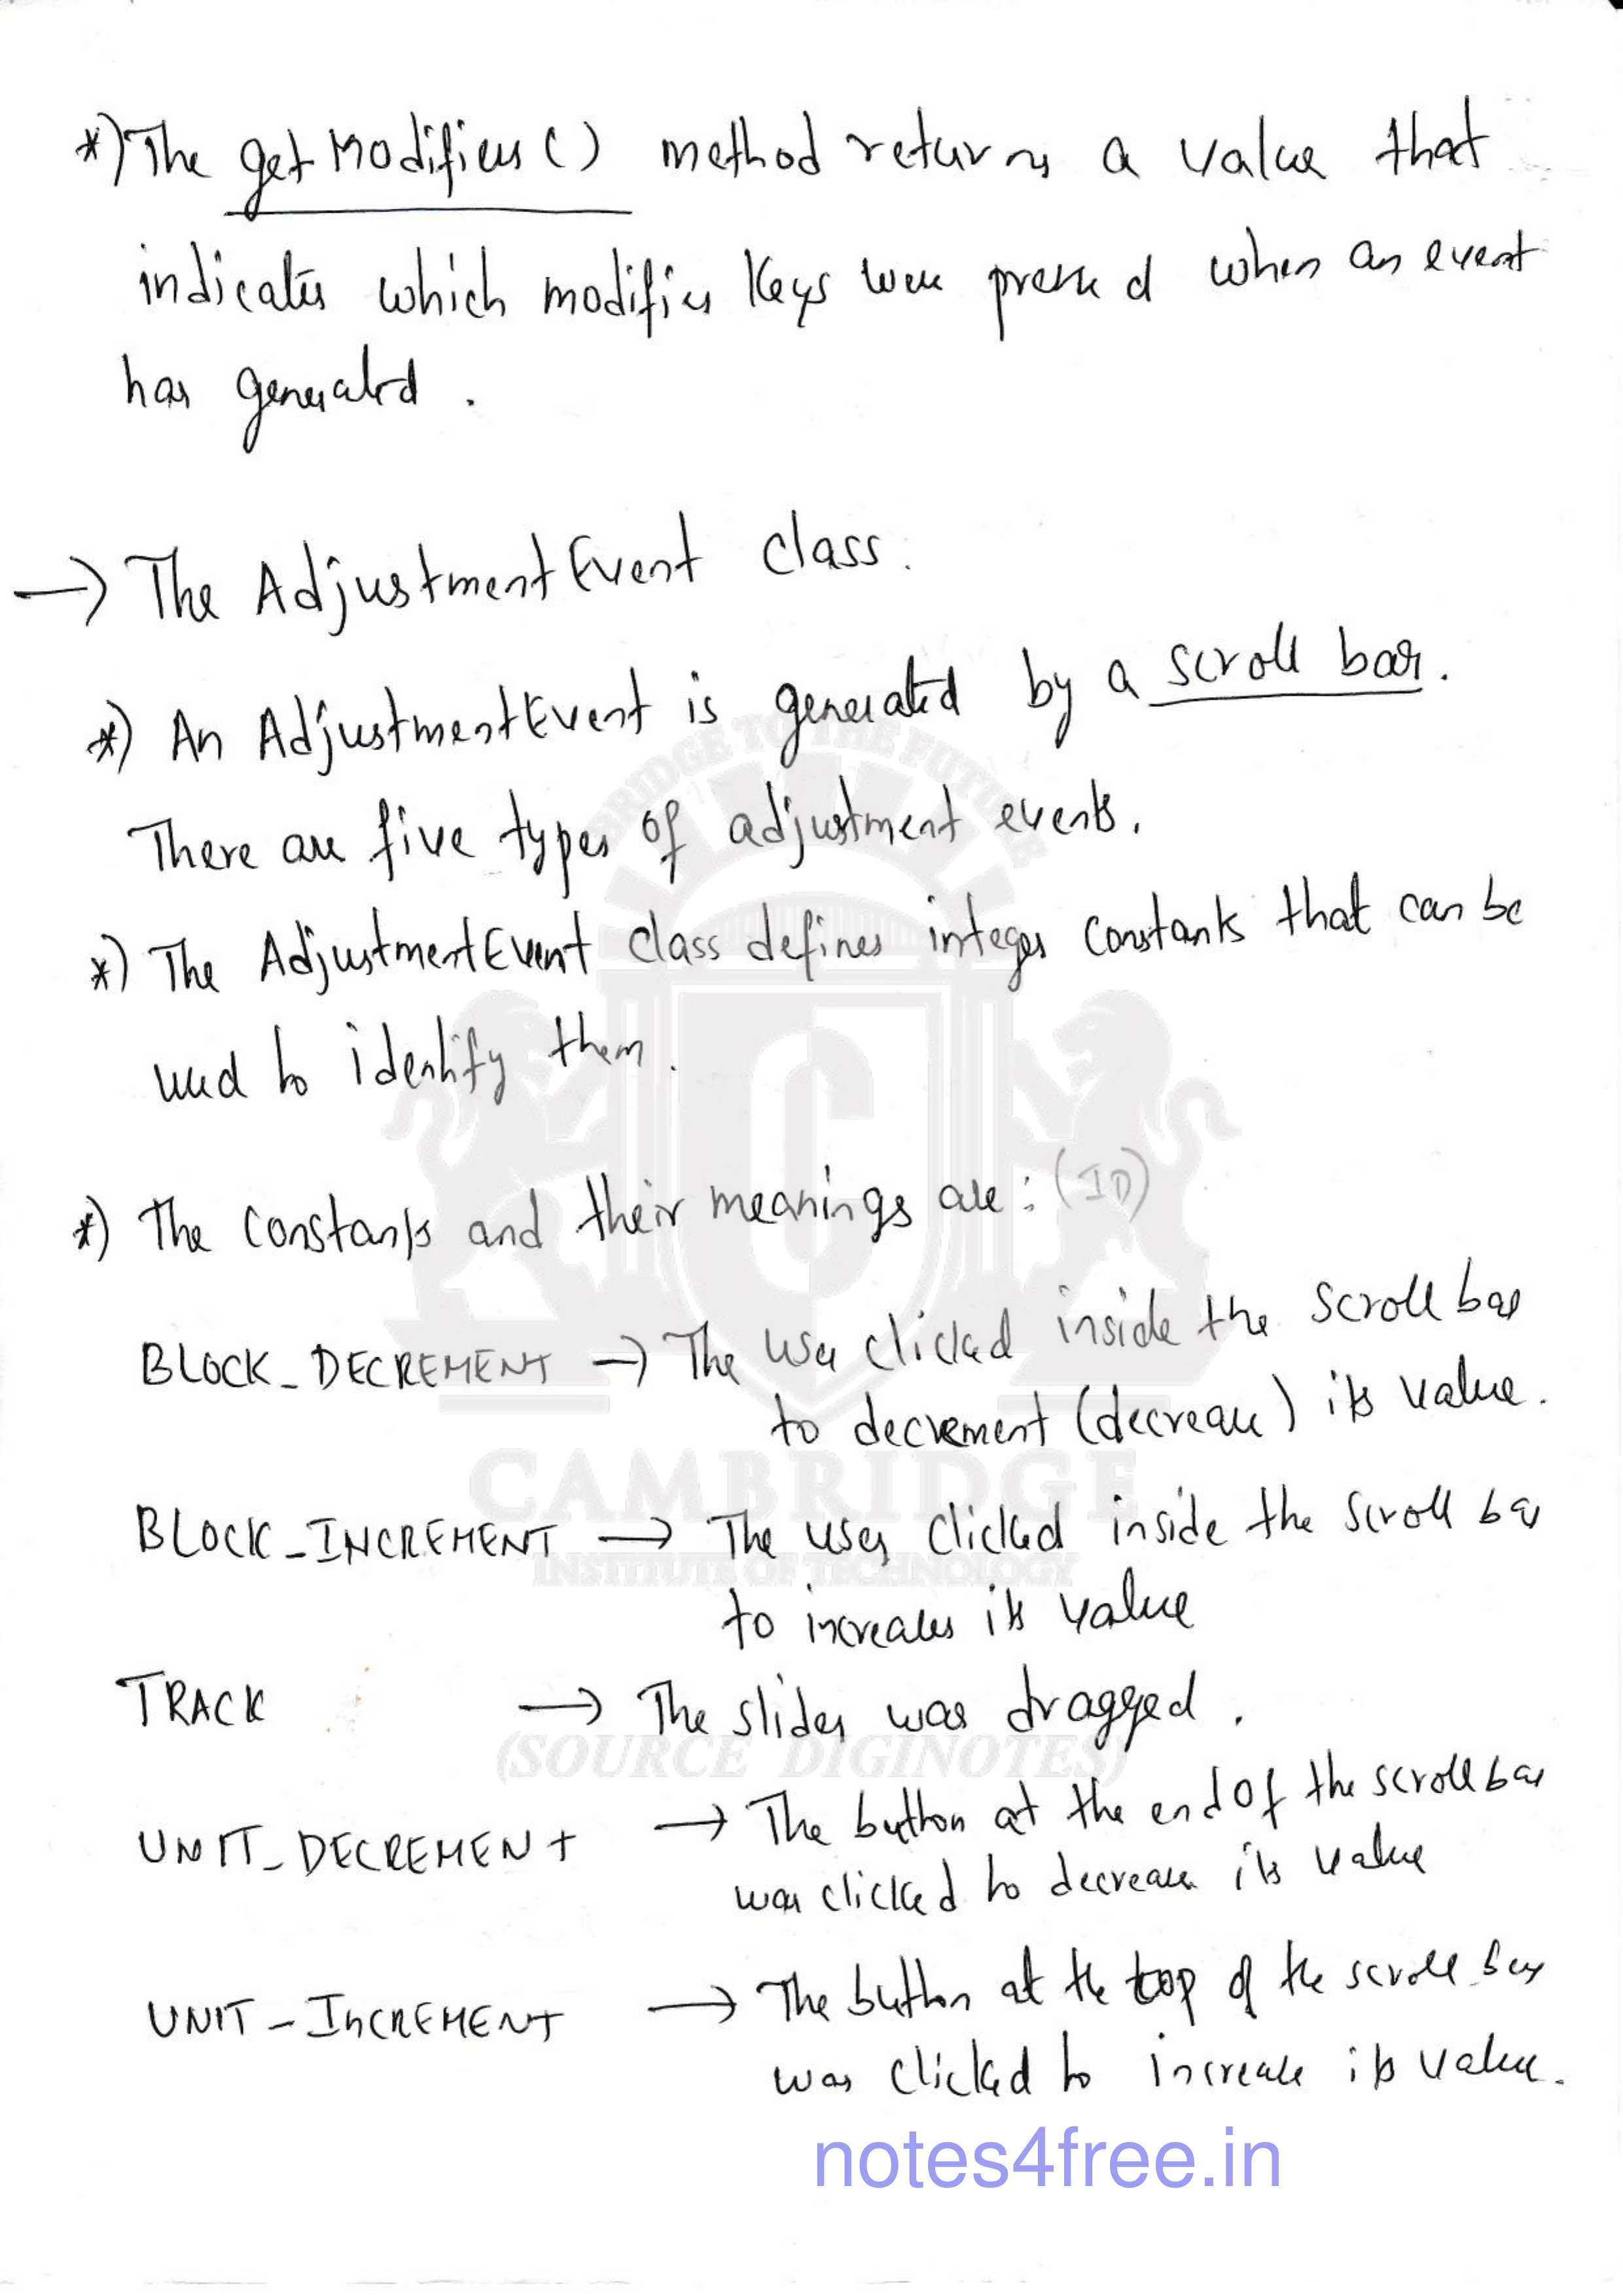 *) The getModifiers() method returns a value that
indicates which modifier keys were pressed when an event
has generated.
→ The AdjustmentEvent class.
*) An AdjustmentEvent is generated by a scroll bar.
There are five types of adjustment events.
*) The AdjustmentEvent class defines integer constants that can be
used to identify them.
*) The constants and their meanings are: (ID)
BLOCK_DECREMENT → The user clicked inside the scroll bar
to decrement (decrease) its value.
BLOCK_INCREMENT → The user clicked inside the scroll bar
to increases its value
TRACK → The slider was dragged.
UNIT_DECREMENT → The button at the end of the scroll bar
was clicked to decrease its value
UNIT_INCREMENT → The button at the top of the scroll bar
was clicked to increase its value.
BRIDGE TO THE FUTURE
C
CAMBRIDGE
INSTITUTE OF TECHNOLOGY
(SOURCE DIGINOTES)
notes4free.in